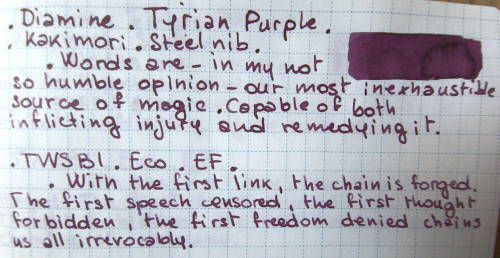 . Diamine . Tyrian Purple .
. Kakimori . Steel nib .
. Words are - in my not
so humble opinion - our most inexhaustible
source of magic . Capable of both
inflicting injury and remedying it.
. TWSBI . Eco . EF .
. With the first link, the chain is forged.
The first speech censored, the first thought
forbidden, the first freedom denied chains
us all irrevocably.